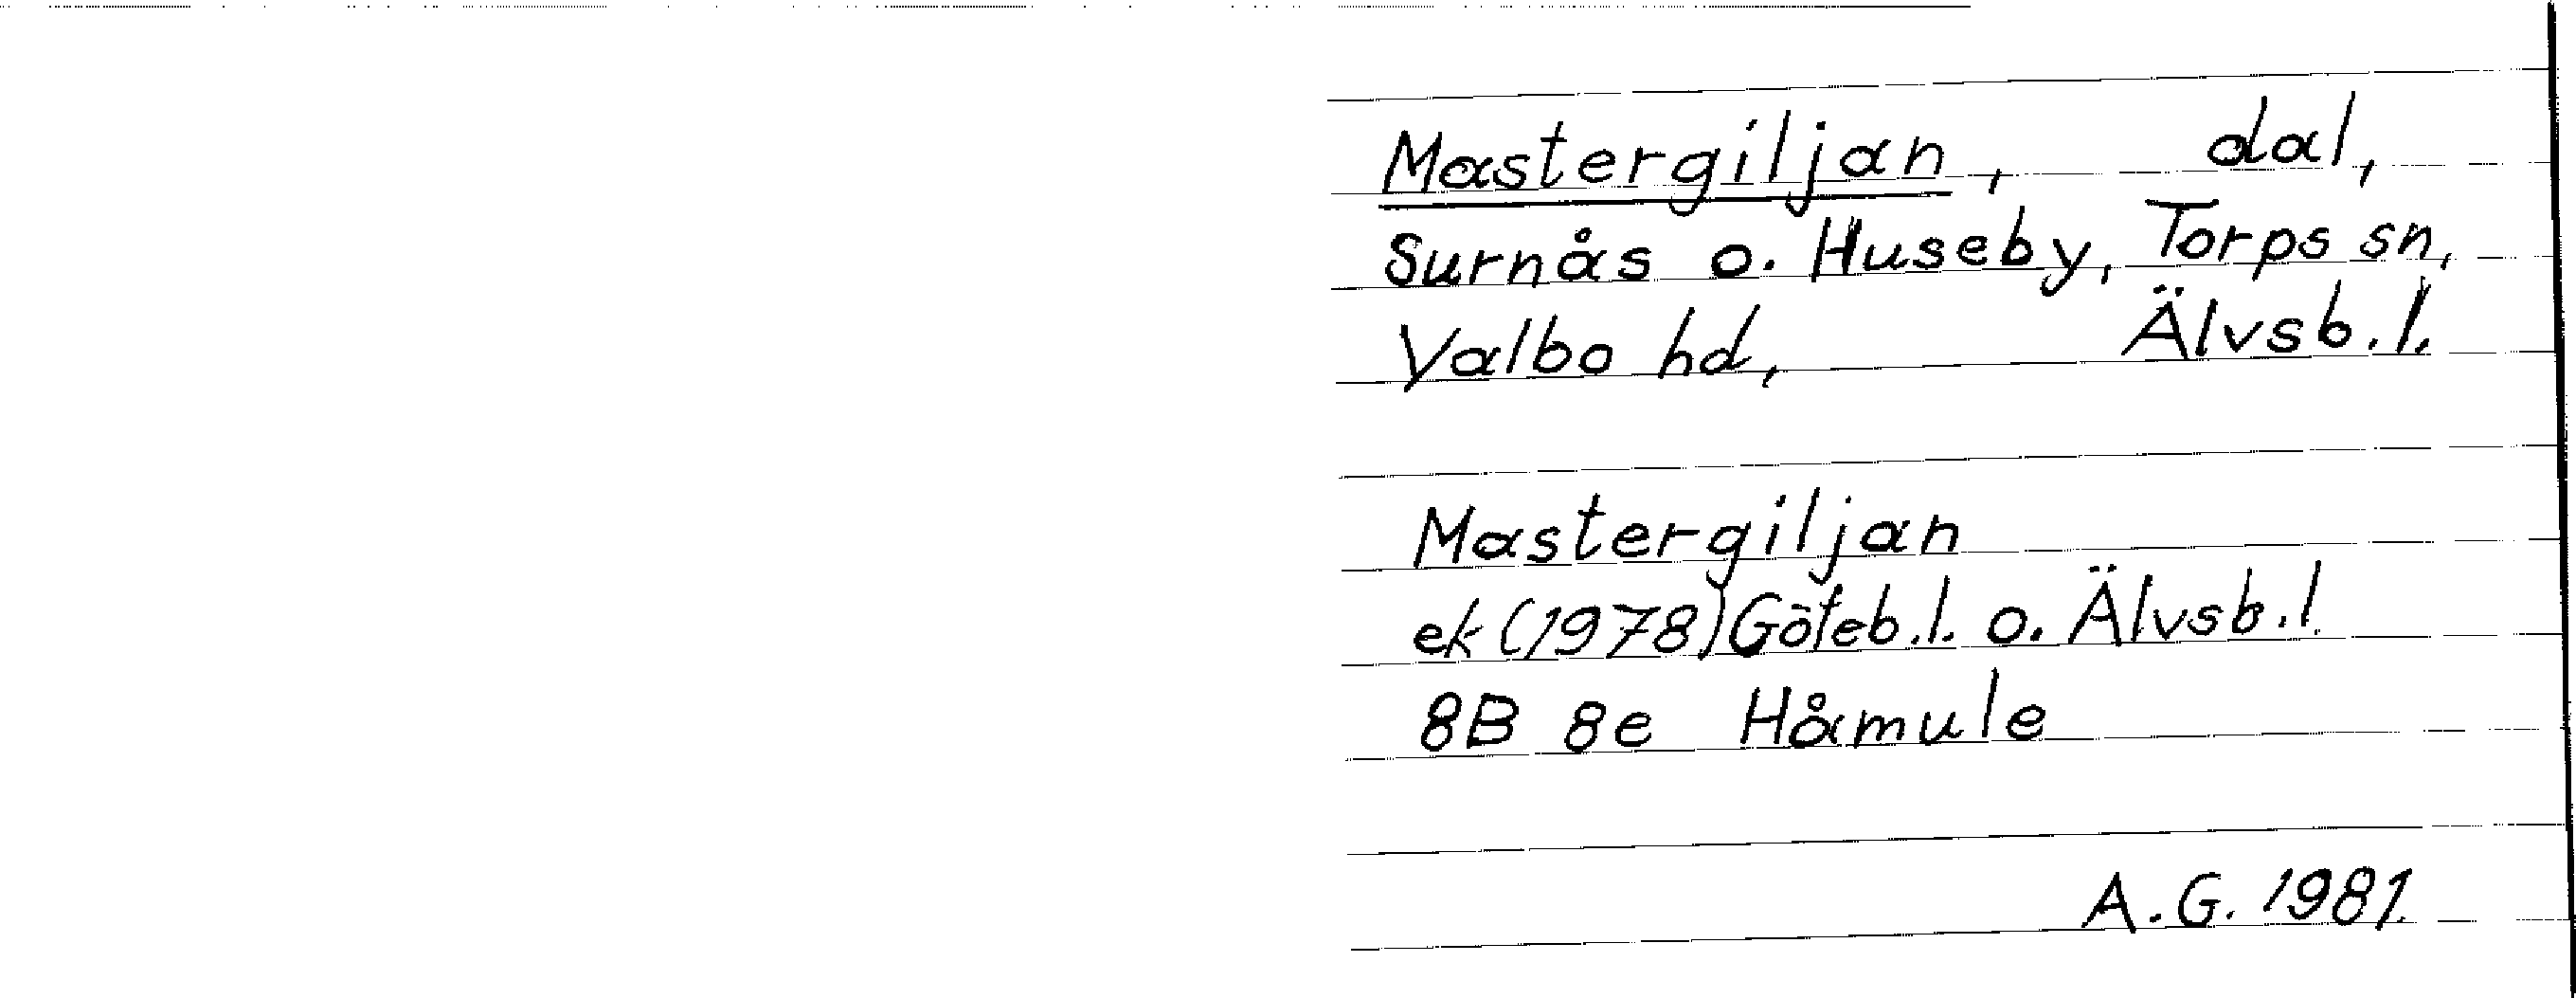 Mastergiljan, dal,
Surnås o. Huseby, Torps sn,
Valbo hd, Älvsb.l.
Mastergiljan
ek (1978) Göteb.l. o. Älvsb.l.
8B 8e Håmule
A.G. 1981.